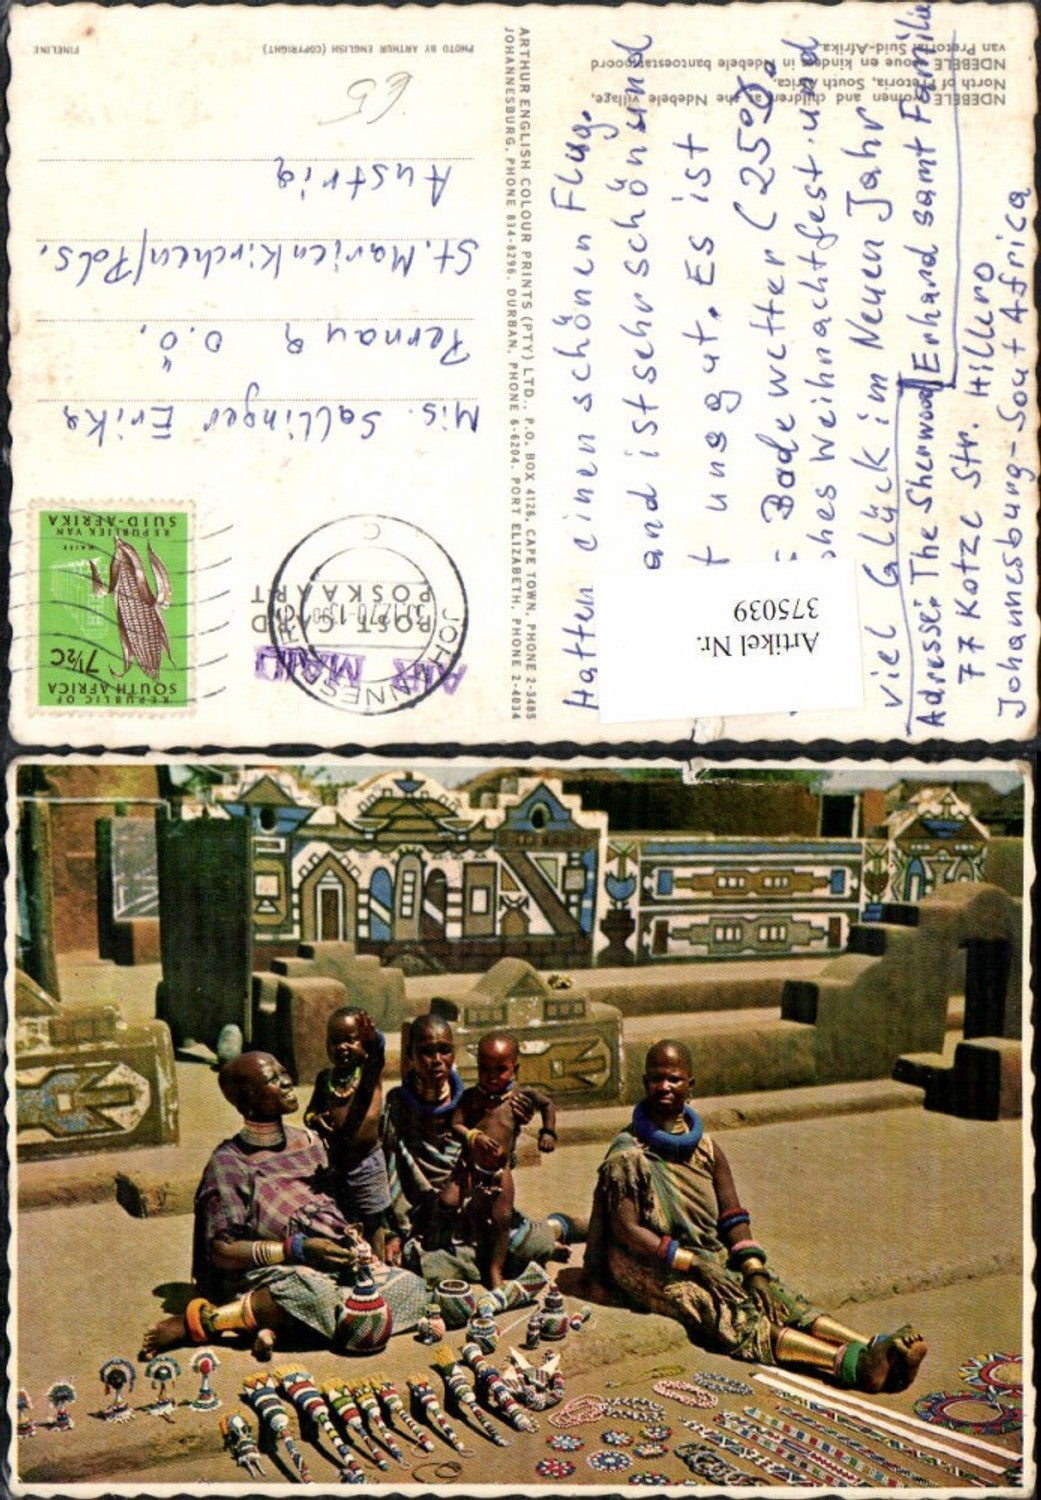 NDEBELE women and children at the Ndebele village,
North of Pretoria, South Africa.
NDEBELE vroue en kinders in Ndebele bantoestamoord
van Pretoria, Suid-Afrika
PHOTO BY ARTHUR ENGLISH (COPYRIGHT)
FINELINE
ARTHUR ENGLISH COLOUR PRINTS (PTY) LTD., P.O. BOX 4126, CAPE TOWN, PHONE 2-3485
JOHANNESBURG, PHONE 834-8296, DURBAN, PHONE 6-6204, PORT ELIZABETH, PHONE 2-4034
Hatten einen schönen Flug.
and ist sehr schön und
t uns gut. Es ist
Badewetter (25°).
hes Weihnachtfest und
viel Glück im Neuen Jahr
Erhard samt Familie
Adresse: The Sherwood
77 Kotze Str. Hillbro
Johannesburg-Sout Africa
POST CARD
POSKAART
AIR MAIL
JOHANNESBURG
C
REPUBLIC OF
SOUTH AFRICA
7½C
MAIZE
REPUBLIEK VAN
SUID-AFRIKA
Mis. Sallinger Erika
Pernau 9 O.Ö.
St. Marienkirchen/Pols.
Austria
Artikel Nr.
375039